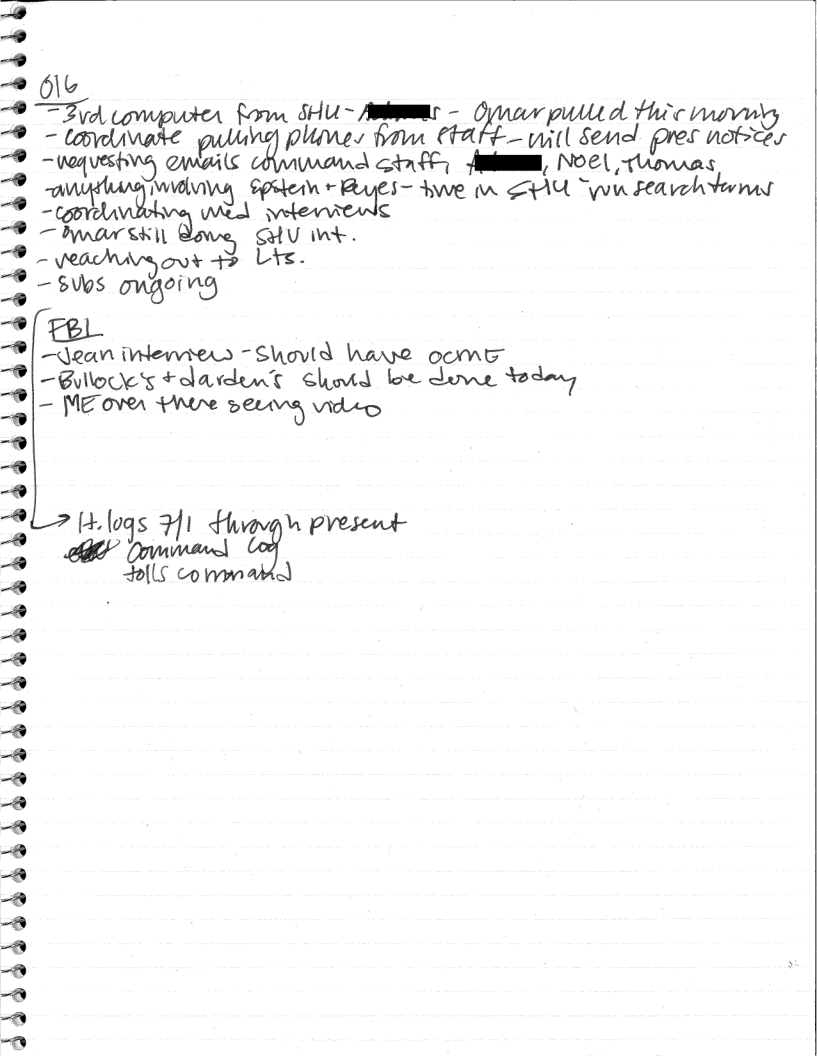 OIG
- 3rd computer from SHU - A s - Omar pulled this morning
- coordinate pulling phones from staff - will send pres notices
- requesting emails command staff, A , Noel, Thomas
- anything involving Epstein + Reyes - time in SHU - run search terms
- coordinating med interviews
- Omar still doing SHU int.
- reaching out to Lts.
- subs ongoing
FBI
- Jean interview - should have OCME
- Bullock's + darden's should be done today
- ME over there seeing video
→ Lt. logs 7/1 through present
command log
tolls command